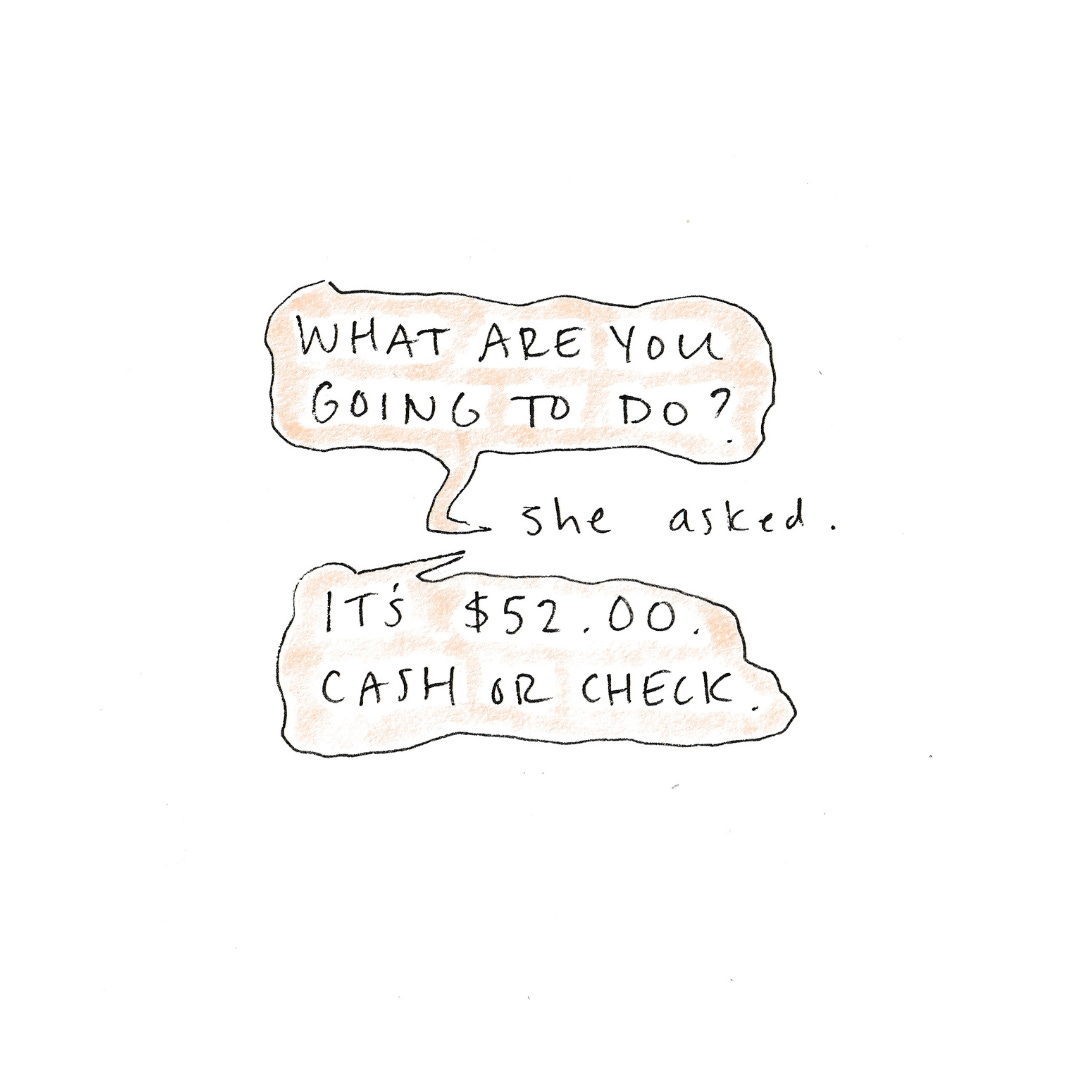 WHAT ARE YOU
GOING TO DO?
she asked.
IT's $52.00.
CASH OR CHECK.